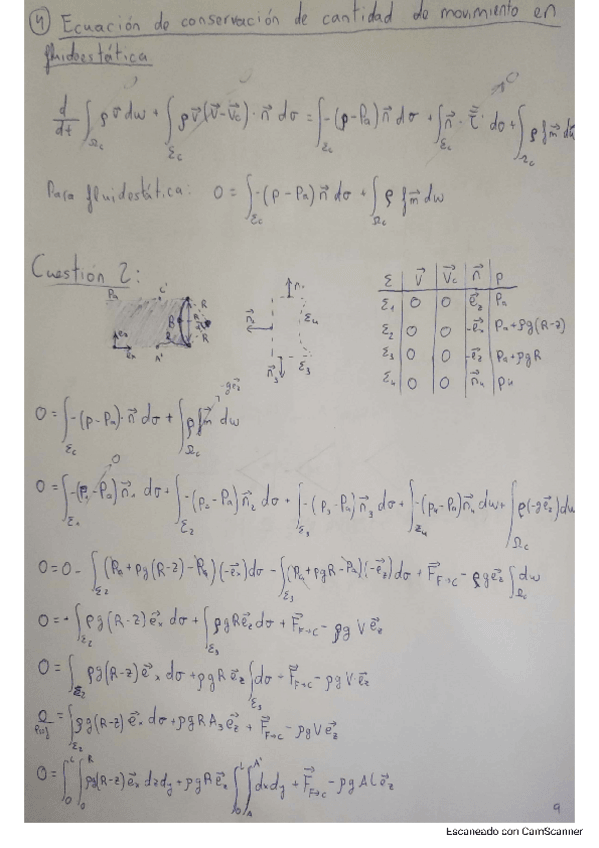 ④ Ecuación de conservación de cantidad de movimiento en
fluidoestática
d/dt ∫_Ωc ρv⃗ dω + ∫_Σc ρv⃗(v⃗-v⃗c)·n⃗ dσ = ∫_Σc -(p-Pa)n⃗ dσ + ∫_Σc n⃗·τ̿ dσ + ∫_Ωc ρ f⃗m dω
Para fluidostática: 0 = ∫_Σc -(p-Pa)n⃗ dσ + ∫_Ωc ρ f⃗m dω
Cuestión 2:
Pa C' B R R A'
n⃗ Σ4 n⃗3 Σ3
Σ v⃗ v⃗c n⃗ p
Σ1 0 0 e⃗z Pa
Σ2 0 0 -e⃗x Pa+ρg(R-z)
Σ3 0 0 -e⃗z Pa+ρgR
Σ4 0 0 n⃗4 p4
0 = ∫_Σc -(p-Pa)·n⃗ dσ + ∫_Ωc ρ f⃗m dω -ge⃗z
0 = ∫_Σ1 -(p1-Pa)n⃗1 dσ + ∫_Σ2 -(p2-Pa)n⃗2 dσ + ∫_Σ3 -(p3-Pa)n⃗3 dσ + ∫_Σ4 -(p4-Pa)n⃗4 dω + ∫_Ωc ρ(-ge⃗z)dω
0 = 0 - ∫_Σ2 (Pa+ρg(R-z)-Pa)(-e⃗x)dσ - ∫_Σ3 (Pa+ρgR-Pa)(-e⃗z)dσ + F⃗F→C - ρge⃗z ∫_Ωc dω
0 = + ∫_Σ2 ρg(R-z)e⃗x dσ + ∫_Σ3 ρgRe⃗z dσ + F⃗F→C - ρgVe⃗z
0 = ∫_Σ2 ρg(R-z)e⃗x dσ + ρgRe⃗z ∫_Σ3 dσ + F⃗F→C - ρgVe⃗z
= ∫_Σ2 ρg(R-z)e⃗x dσ + ρgRA3e⃗z + F⃗F→C - ρgVe⃗z
0 = ∫_0^L ∫_0^R ρg(R-z)e⃗x dzdy + ρgRe⃗z ∫_0^L ∫_A^A' dxdy + F⃗F→C - ρgALe⃗z
9
Escaneado con CamScanner